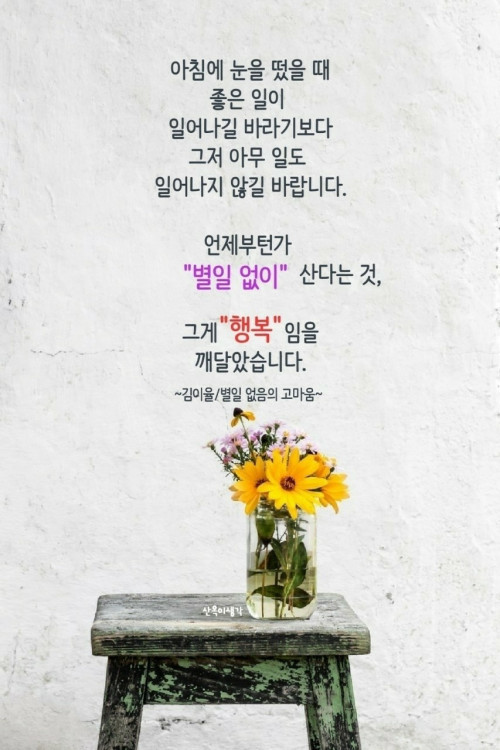 아침에 눈을 떴을 때
좋은 일이
일어나길 바라기보다
그저 아무 일도
일어나지 않길 바랍니다.
언제부턴가
"별일 없이" 산다는 것,
그게 "행복"임을
깨달았습니다.
~김이율/별일 없음의 고마움~
산옥이생각